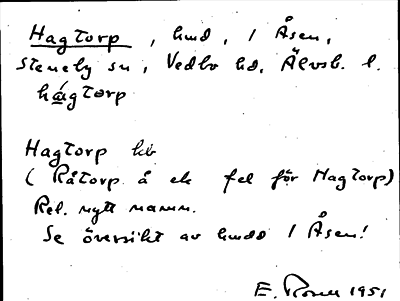 Hagtorp, hmd, i Åsen,
Steneby sn, Vedbo hd, Älvsb. l.
hágtorp
Hagtorp hb
(Råtorp å ek fel för Hagtorp)
Rel. nytt namn.
Se översikt av hmdd i Åsen!
E. Rosen 1951